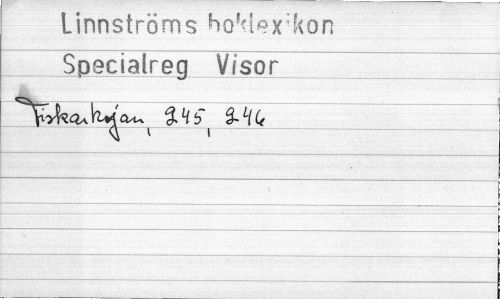 Linnströms boklexikon
Specialreg Visor
Fiskarkojan, 245, 246